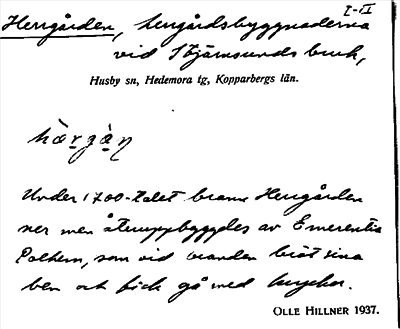 I-II
Herrgården, herrgårdsbyggnaderna
vid Stjärnsunds bruk,
Husby sn, Hedemora tg, Kopparbergs län.
Under 1700-talet brann Herrgården
ner men återuppbyggdes av Emerentia
Polhem, som vid branden bröt sina
ben och fick gå med kryckor.
OLLE HILLNER 1937.